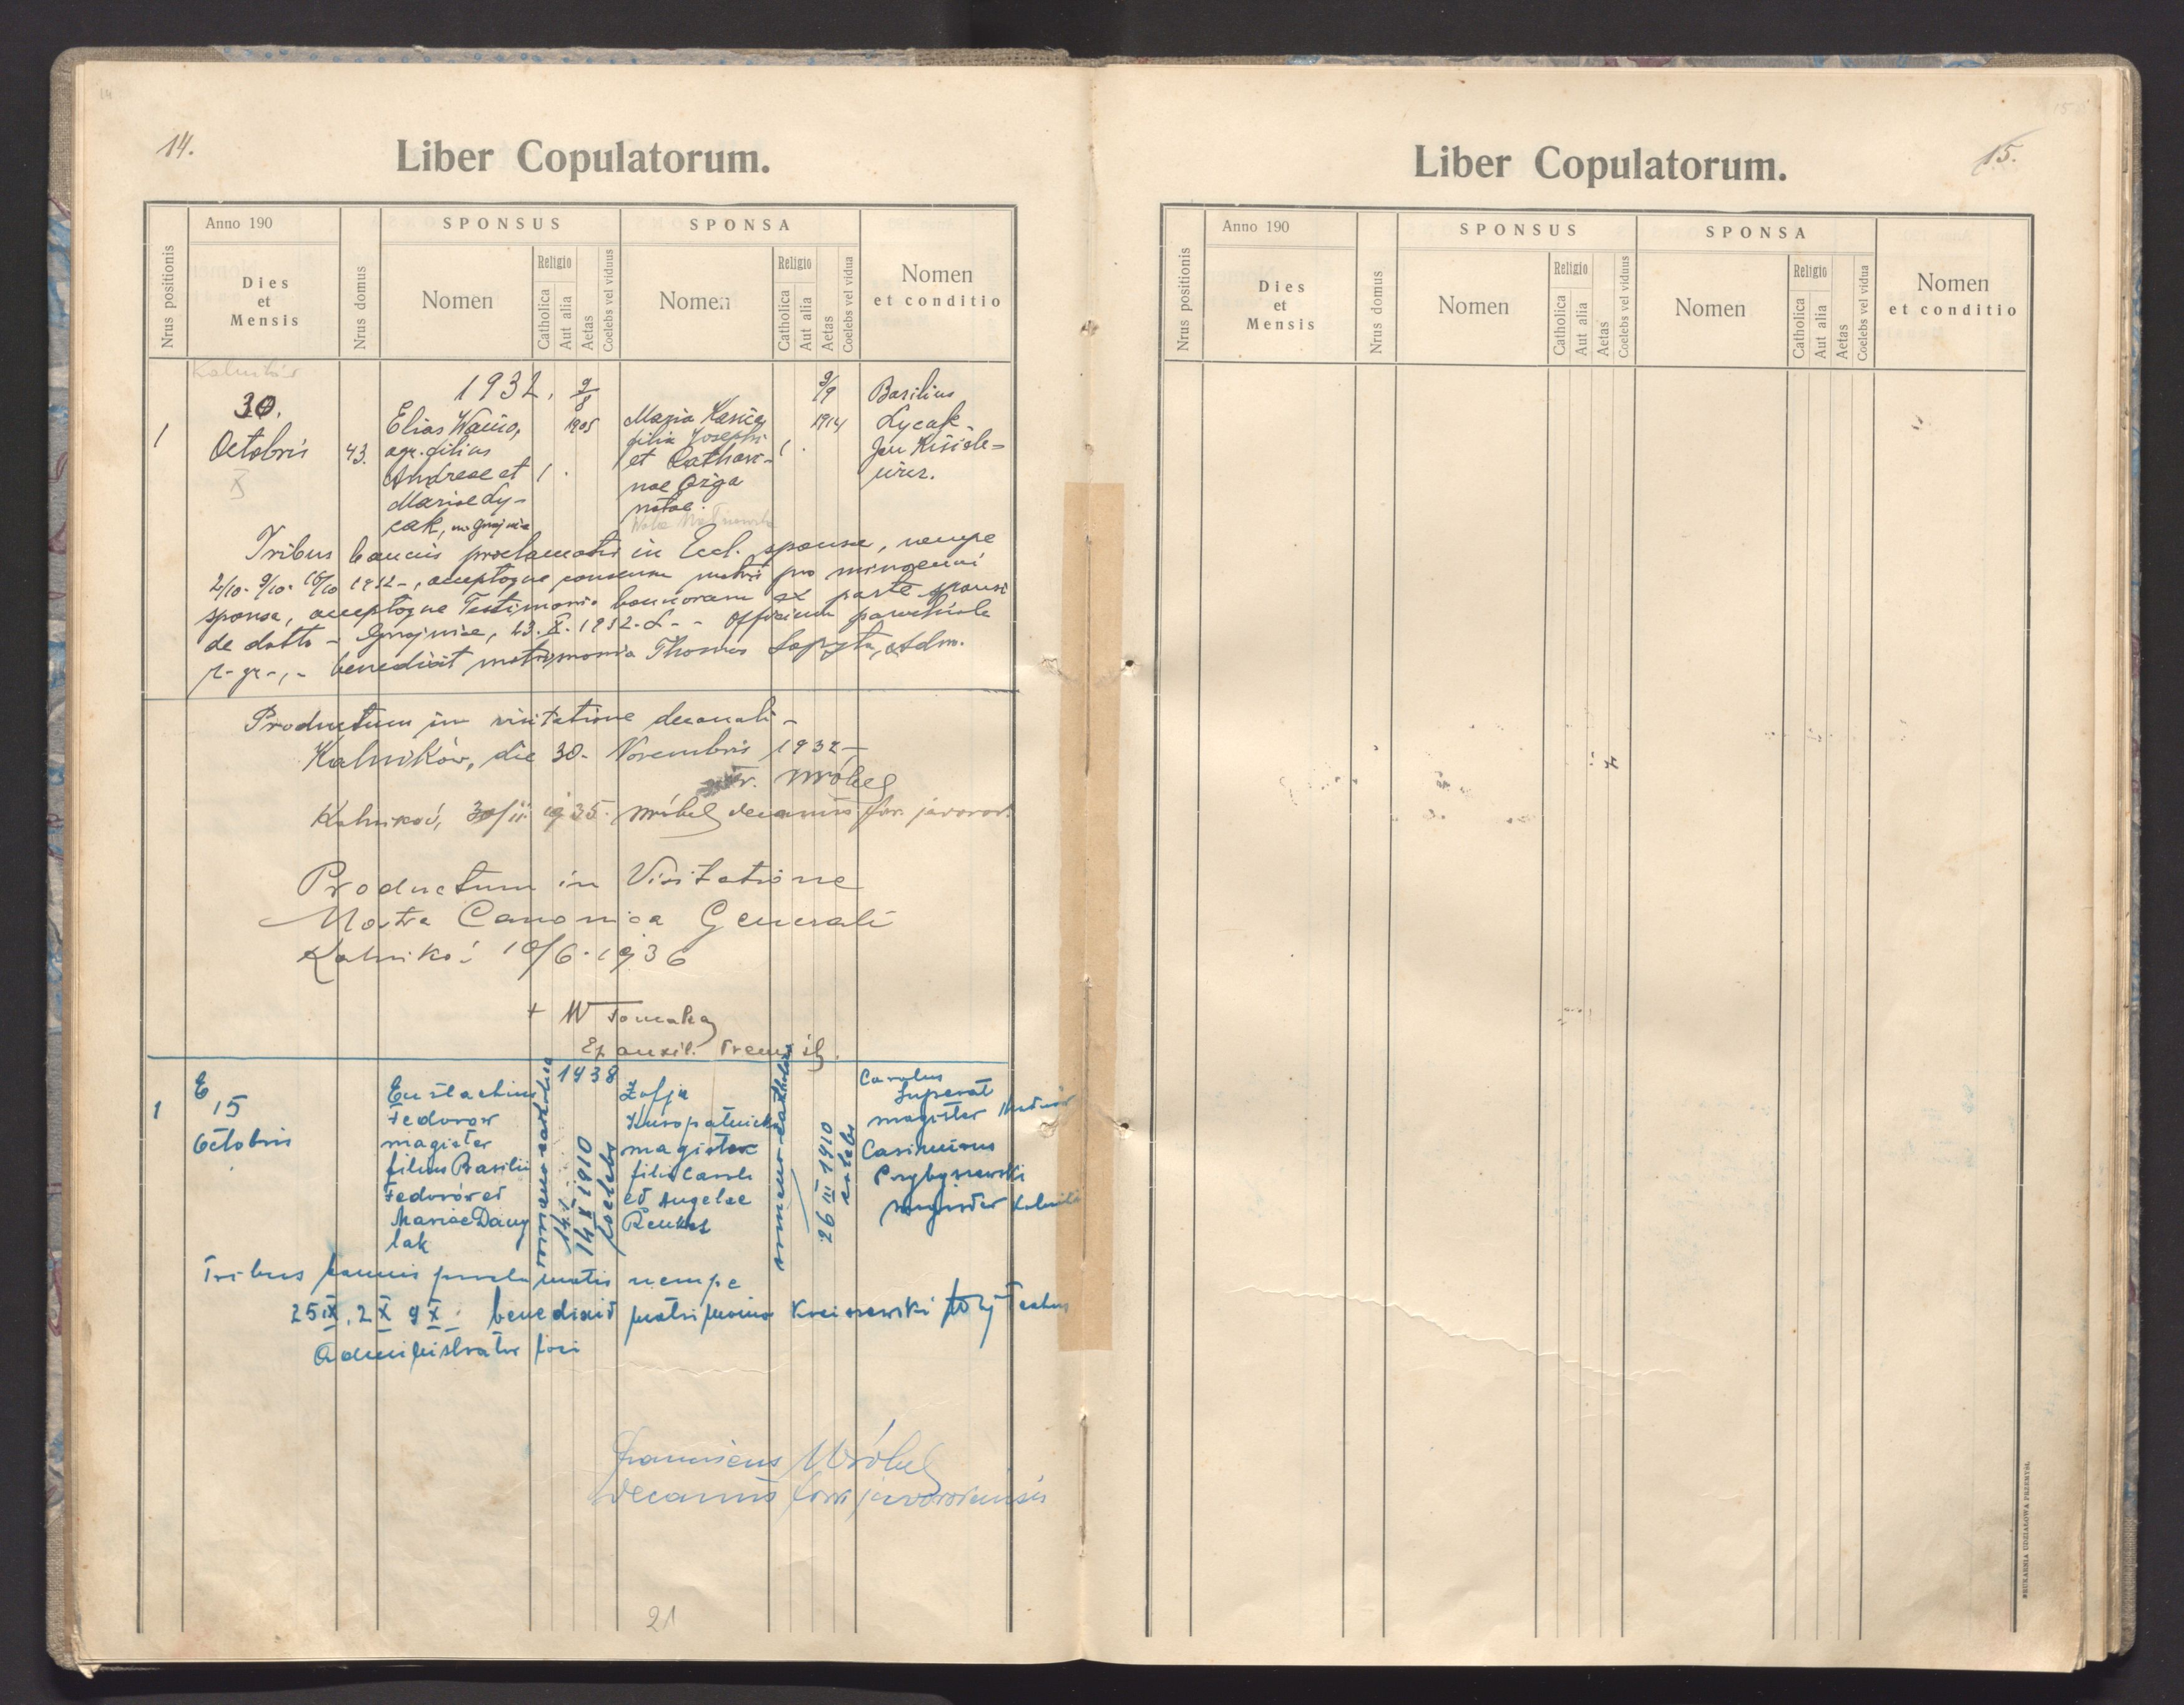 14.
Liber Copulatorum.
Nrus positionis
Anno 190
Dies
et
Mensis
Nrus domus
SPONSUS
Nomen
Religio
Catholica
Aut alia
Aetas
Coelebs vel viduus
SPONSA
Nomen
Religio
Catholica
Aut alia
Aetas
Coelebs vel vidua
Nomen
et conditio
Kalników
1932.
1
30.
Octobris
X
43.
Elias
agr. filius
Andreae et
Mariae Ly-
cak,
9/8
1905
Maria
filia Josephi
etAthari-
nae
natae.
9/9
1914
Basilius
Lycak
Jan
Tribus bannis proclamatis in Eccl. sponsae, nempe
2/10. 9/10. 16/10 1932-, acceptoque consensu matris pro
sponsa, acceptoque Testimonio bannorum ex parte sponsi
de datto - Gnojnice, 23. X. 1932. Officium parochiale
r-gr-,- benedixit matrimonia Thomas Adm.
Productum in visitatione decanali -
Kalników, die 30. Novembris 1932 -
Wróbel
Kalników, 30/11 1935. Wróbel decanus for. javorov.
Productum in Visitatione
Nostra Canonica Generali
Kalników 10/6. 1936
+ W Tomaka
Ep auxil.
1938
1
15
Octobris
Eustachius
Fedorow
magister
filius Basilii
Fedorów et
Mariae Dany
lak
romano-catholica
14 X 1910
coelebs
Zofja
Kuropatnicka
magister
filia Caroli
et Angelae
romano-catholica
26 III 1910
coelebs
Carolus
Superat
magister
Casimirus
Przybyszewski
magister
Tribus bannis proclamatis nempe
25 IX, 2 X 9 X benedixit matrimonio
Administrator loci
Franciscus Wróbel
Decanus fori javoroviensis
21
Liber Copulatorum.
15.
Nrus positionis
Anno 190
Dies
et
Mensis
Nrus domus
SPONSUS
Nomen
Religio
Catholica
Aut alia
Aetas
Coelebs vel viduus
SPONSA
Nomen
Religio
Catholica
Aut alia
Aetas
Coelebs vel vidua
Nomen
et conditio
DRUKARNIA UDZIAŁOWA PRZEMYŚL